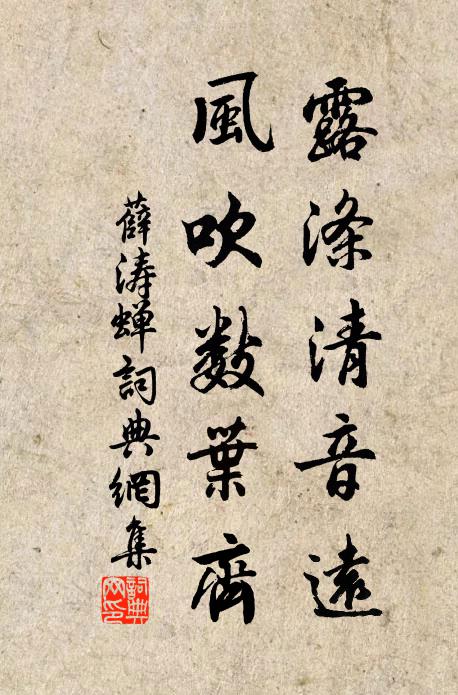 露滌清音遠
風吹數葉齊
薛涛蝉詞典網集
詞典网印